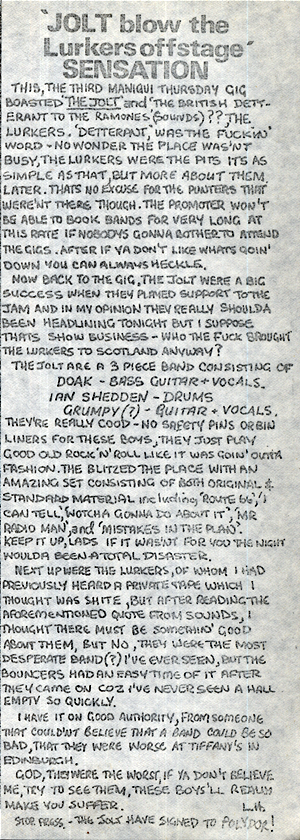 'JOLT blow the
Lurkers offstage'
SENSATION
THIS, THE THIRD MANIQUI THURSDAY GIG
BOASTED 'THE JOLT' and 'THE BRITISH DETT-
ERANT TO THE RAMONES' (SOUNDS) ?? , THE
LURKERS. 'DETTERANT', WAS THE FUCKIN'
WORD - NO WONDER THE PLACE WAS'NT
BUSY, THE LURKERS WERE THE PITS IT'S AS
SIMPLE AS THAT, BUT MORE ABOUT THEM
LATER. THATS NO EXCUSE FOR THE PUNTERS THAT
WERE'NT THERE THOUGH. THE PROMOTER WON'T
BE ABLE TO BOOK BANDS FOR VERY LONG AT
THIS RATE IF NOBODYS GONNA BOTHER TO ATTEND
THE GIGS. AFTER IF YA DON'T LIKE WHATS GOIN'
DOWN YOU CAN ALWAYS HECKLE.
NOW BACK TO THE GIG, THE JOLT WERE A BIG
SUCCESS WHEN THEY PLAYED SUPPORT TO THE
JAM AND IN MY OPINION THEY REALLY SHOULDA
BEEN HEADLINING TONIGHT BUT I SUPPOSE
THATS SHOW BUSINESS - WHO THE FUCK BROUGHT
THE LURKERS TO SCOTLAND ANYWAY?
THE JOLT ARE A 3 PIECE BAND CONSISTING OF
DOAK - BASS GUITAR + VOCALS.
IAN SHEDDEN - DRUMS
GRUMPY (?) - GUITAR + VOCALS.
THEY'RE REALLY GOOD - NO SAFETY PINS OR BIN
LINERS FOR THESE BOYS, THEY JUST PLAY
GOOD OLD ROCK 'N' ROLL LIKE IT WAS GOIN' OUTTA
FASHION. THE BLITZED THE PLACE WITH AN
AMAZING SET CONSISTING OF BOTH ORIGINAL &
STANDARD MATERIAL including, 'ROUTE 66', 'I
CAN TELL', 'WOTCHA GONNA DO ABOUT IT', 'MR
RADIO MAN', and 'MISTAKES IN THE PLAN'.
KEEP IT UP, LADS IF IT WAS'NT FOR YOU THE NIGHT
WOULDA BEEN A TOTAL DISASTER.
NEXT UP WERE THE LURKERS, OF WHOM I HAD
PREVIOUSLY HEARD A PRIVATE TAPE WHICH I
THOUGHT WAS SHITE, BUT AFTER READING THE
AFOREMENTIONED QUOTE FROM SOUNDS, I
THOUGHT THERE MUST BE SOMETHIN' GOOD
ABOUT THEM, BUT NO, THEY WERE THE MOST
DESPERATE BAND(?) I'VE EVER SEEN, BUT THE
BOUNCERS HAD AN EASY TIME OF IT AFTER
THEY CAME ON COZ I'VE NEVER SEEN A HALL
EMPTY SO QUICKLY.
I HAVE IT ON GOOD AUTHORITY, FROM SOMEONE
THAT COULD'NT BELIEVE THAT A BAND COULD BE SO
BAD, THAT THEY WERE WORSE AT TIFFANY'S IN
EDINBURGH.
GOD, THEY WERE THE WORST, IF YA DON'T BELIEVE
ME, TRY TO SEE THEM, THESE BOYS'LL REALLY
MAKE YOU SUFFER. L.H.
STOP PRESS - THE JOLT HAVE SIGNED TO POLYDOR!